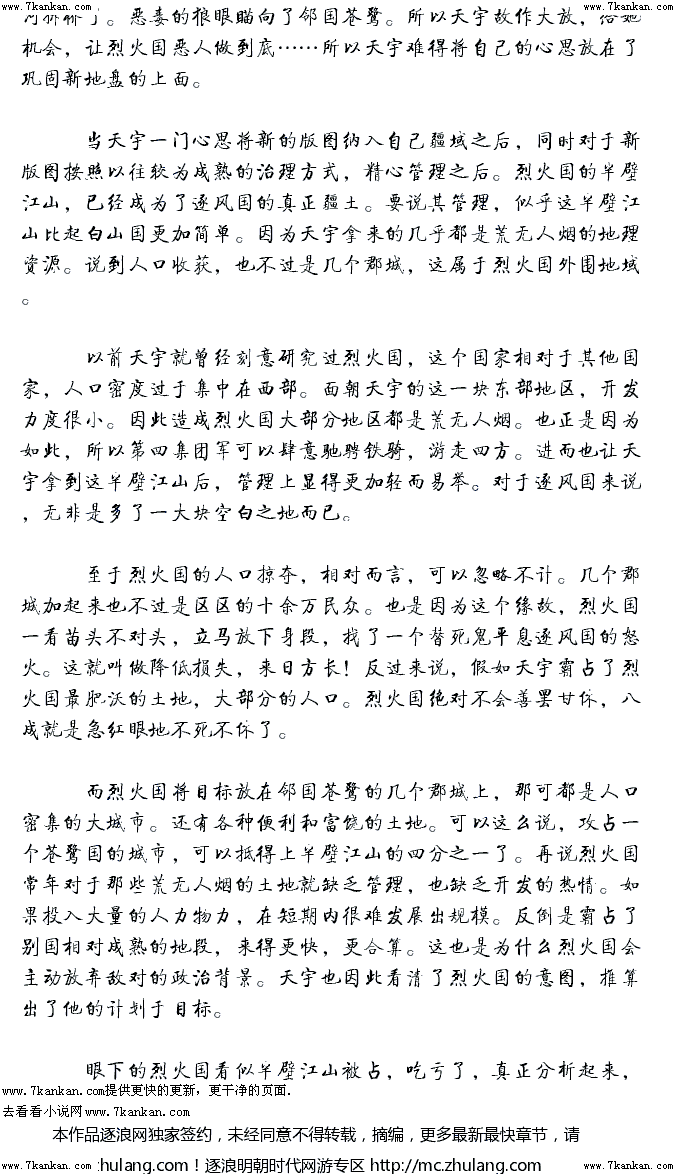 www.7kankan.com www.7kankan.com
了。恶毒的狼眼瞄向了邻国苍鹭。所以天宇故作大放，给她
机会，让烈火国恶人做到底……所以天宇难得将自己的心思放在了
巩固新地盘的上面。
当天宇一门心思将新的版图纳入自己疆域之后，同时对于新
版图按照以往较为成熟的治理方式，精心管理之后。烈火国的半壁
江山，已经成为了逐风国的真正疆土。要说其管理，似乎这半壁江
山比起白山国更加简单。因为天宇拿来的几乎都是荒无人烟的地理
资源。说到人口收获，也不过是几个郡城，这属于烈火国外围地域
。
以前天宇就曾经刻意研究过烈火国，这个国家相对于其他国
家，人口密度过于集中在西部。面朝天宇的这一块东部地区，开发
力度很小。因此造成烈火国大部分地区都是荒无人烟。也正是因为
如此，所以第四集团军可以肆意驰骋铁骑，游走四方。进而也让天
宇拿到这半壁江山后，管理上显得更加轻而易举。对于逐风国来说
，无非是多了一大块空白之地而已。
至于烈火国的人口掠夺，相对而言，可以忽略不计。几个郡
城加起来也不过是区区的十余万民众。也是因为这个缘故，烈火国
一看苗头不对头，立马放下身段，找了一个替死鬼平息逐风国的怒
火。这就叫做降低损失，来日方长！反过来说，假如天宇霸占了烈
火国最肥沃的土地，大部分的人口。烈火国绝对不会善罢甘休，八
成就是急红眼地不死不休了。
而烈火国将目标放在邻国苍鹭的几个郡城上，那可都是人口
密集的大城市。还有各种便利和富饶的土地。可以这么说，攻占一
个苍鹭国的城市，可以抵得上半壁江山的四分之一了。再说烈火国
常年对于那些荒无人烟的土地就缺乏管理，也缺乏开发的热情。如
果投入大量的人力物力，在短期内很难发展出规模。反倒是霸占了
别国相对成熟的地段，来得更快，更合算。这也是为什么烈火国会
主动放弃敌对的政治背景。天宇也因此看清了烈火国的意图，推算
出了他的计划于目标。
眼下的烈火国看似半壁江山被占，吃亏了，真正分析起来，
www.7kankan.com提供更快的更新，更干净的页面.
去看看小说网www.7kankan.com
本作品逐浪网独家签约，未经同意不得转载，摘编，更多最新最快章节，请
www.7kankan.com :hulang.com！逐浪明朝时代网游专区 http://mc.zhulang.com www.7kankan.com